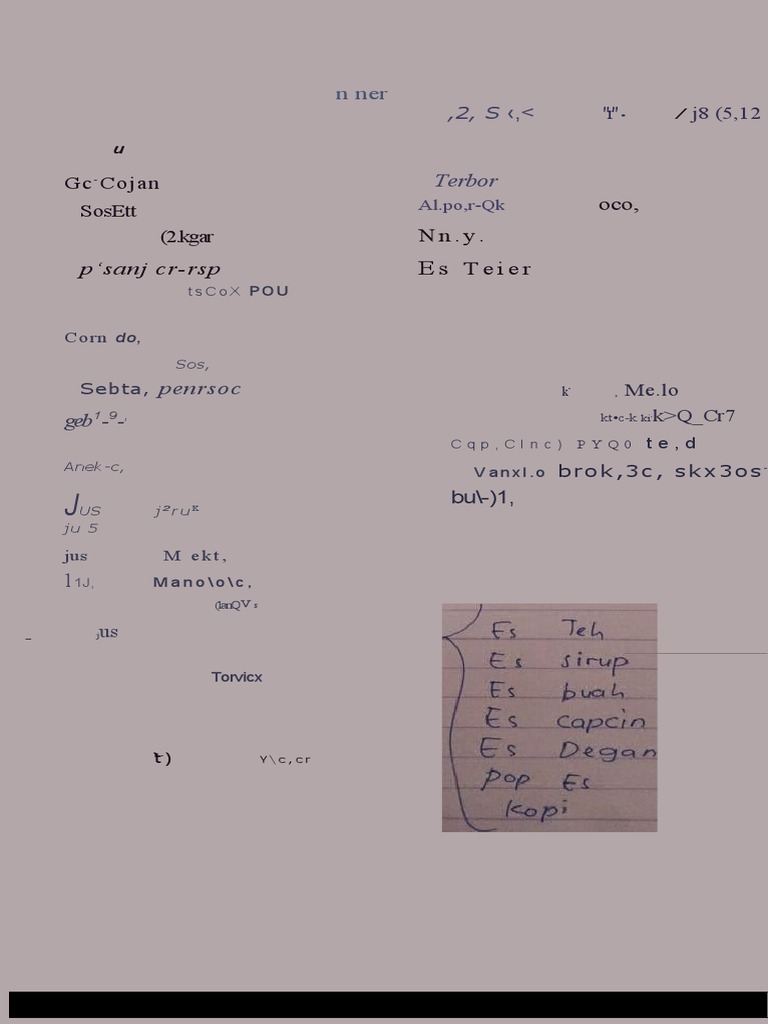 n ner
,2, S ‹,< "Y"· / j8 (5,12
u
Gc-Cojan
SosEtt
(2.kgar
p‘sanj cr-rsp
tsCoX POU
Terbor
Al.po,r-Qk oco,
Nn.y.
Es Teier
Corn do,
Sos,
Sebta, penrsoc
geb
Anek-c,
Jus j²ru
ju 5
jus M ekt,
l1J, Mano\o\c,
jus
Torvicx
t) Y\c,cr
k , Me.lo
k>Q_Cr7
Cqp,Clnc) PYQ0 te,d
Vanxl.o brok,3c, skx3os
bu\-)1,
Es Teh
Es sirup
Es buah
Es capcin
Es Degan
pop Es
kopi